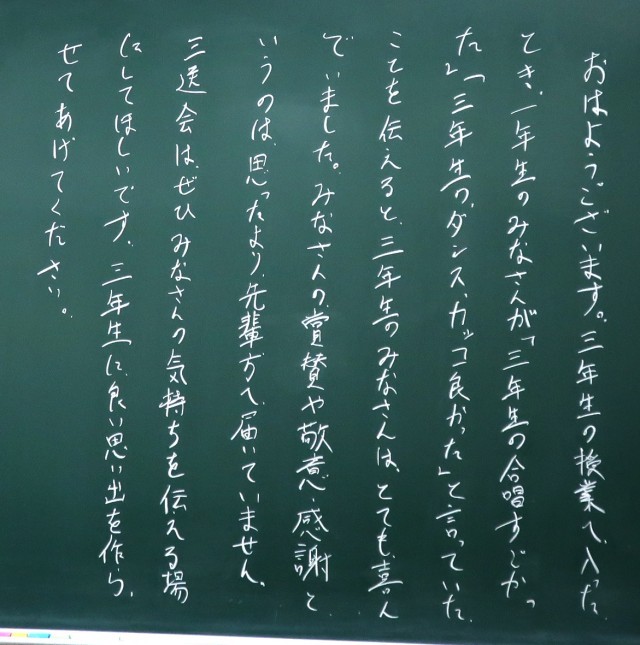 おはようございます。三年生の授業へ入った
とき、一年生のみなさんが「三年生の合唱すごかっ
た」「三年生のダンス、カッコ良かった」と言っていた
ことを伝えると、三年生のみなさんは、とても喜ん
でいました。みなさんの賞賛や敬意・感謝と
いうのは、思ったより、先輩方へ届いていません。
三送会は、ぜひみなさんの気持ちを伝える場
にしてほしいです。三年生に、良い思い出を作ら
せてあげてください。